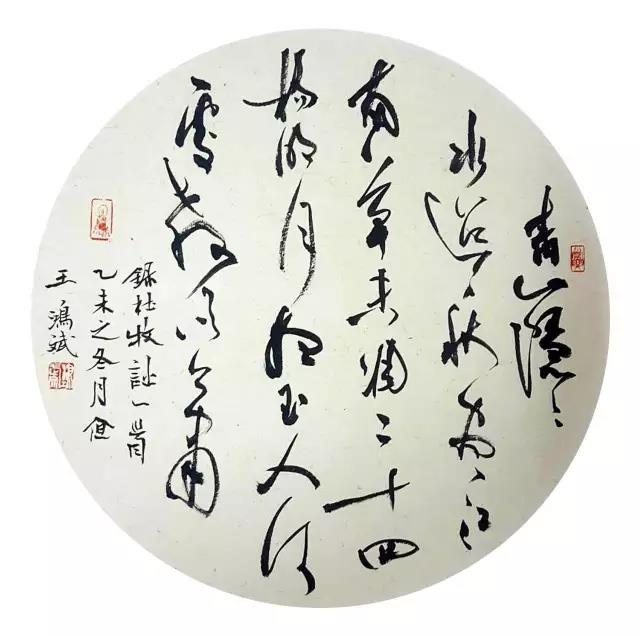 青山隱〻
水迢〻秋盡江
南草未凋二十四
橋明月夜玉人何
處教吹簫
錄杜牧詩一首
乙未之冬月
王鴻斌